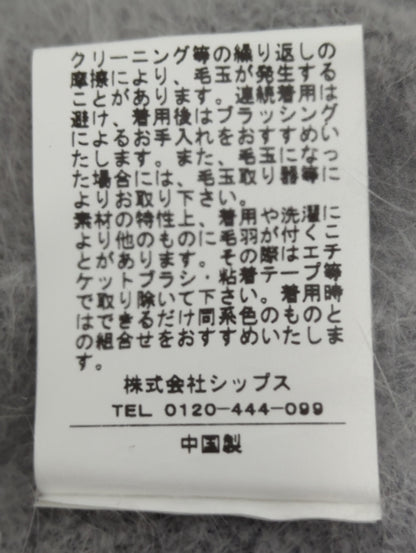 クリーニング等の繰り返しの
摩擦により、毛玉が発生する
ことがあります。連続着用は
避け、着用後はブラッシング
によるお手入れをおすすめい
たします。また、毛玉になっ
た場合には、毛玉取り器等に
よりお取り下さい。
素材の特性上、着用や洗濯に
より他のものに毛羽が付くこ
とがあります。その際はエチ
ケットブラシ・粘着テープ等
で取り除いて下さい。着用時
はできるだけ同系色のものと
の組合せをおすすめいたしま
す。
株式会社シップス
TEL 0120-444-099
中国製